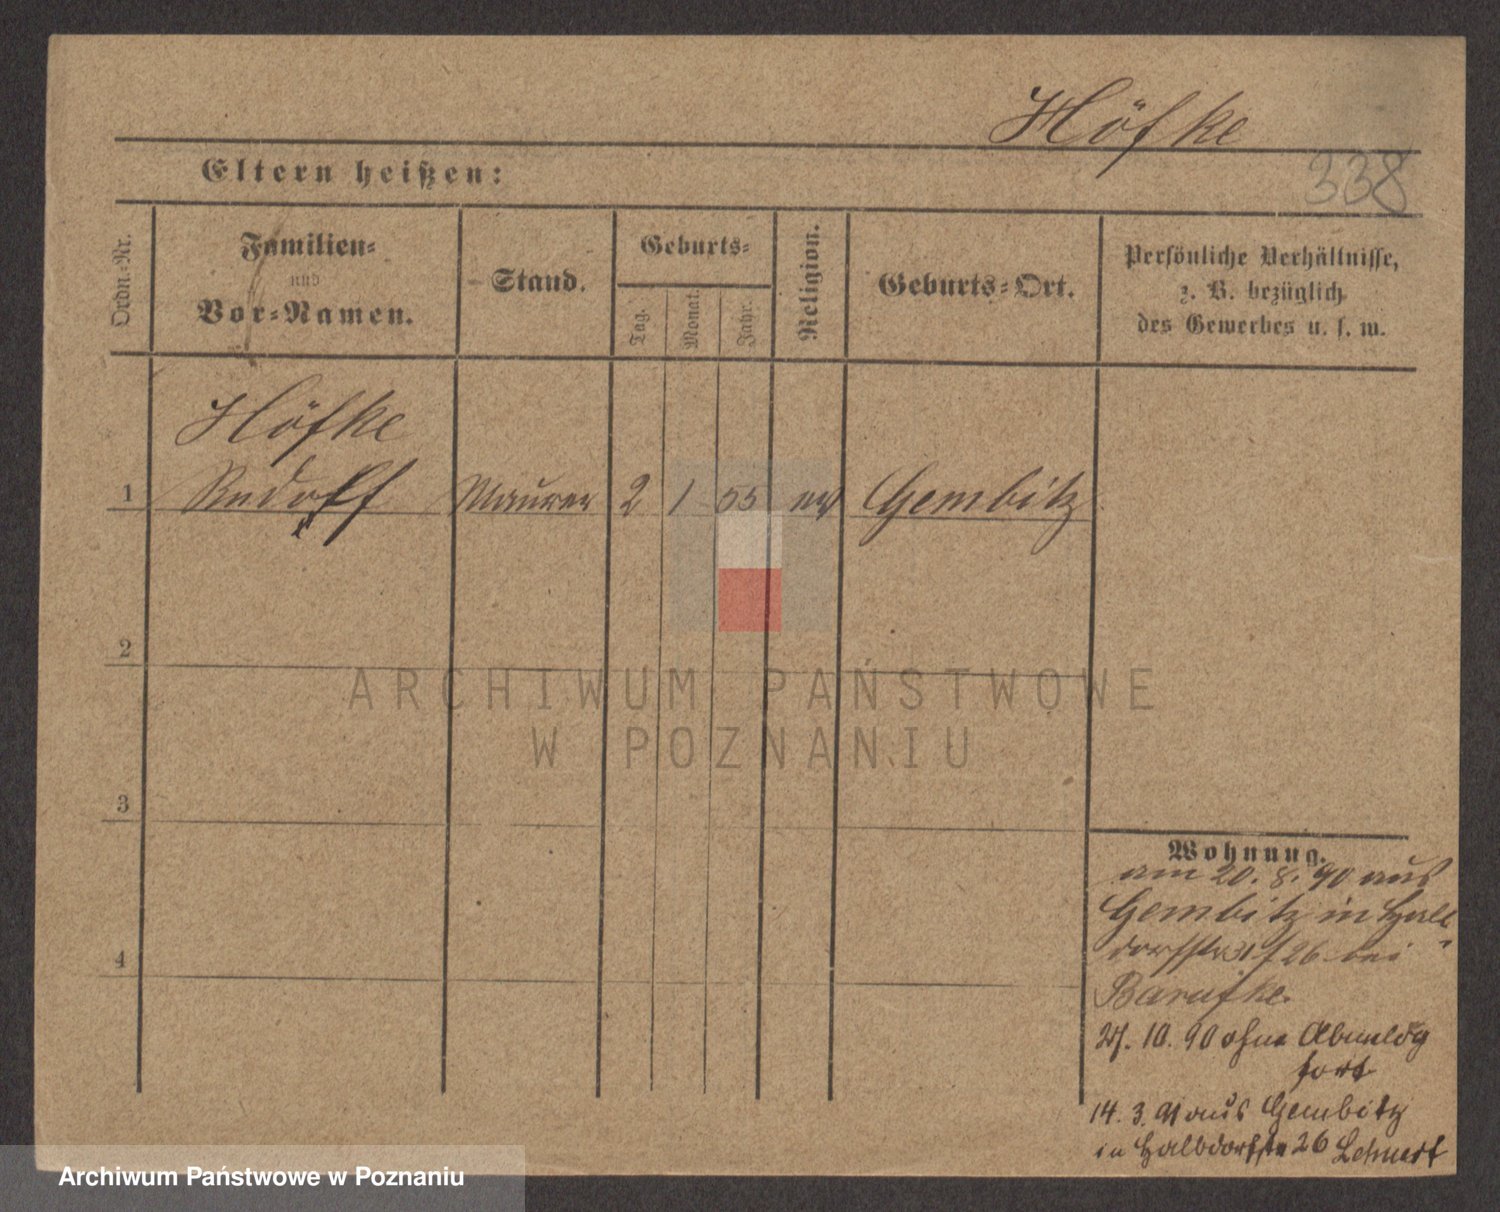 Höfke
338
Eltern heißen:
Ordn.-Nr.
Familien-
und
Vor-Namen.
Stand.
Geburts-
Tag.
Monat.
Jahr.
Religion.
Geburts-Ort.
Persönliche Verhältnisse,
z. B. bezüglich
des Gewerbes u. s. w.
Höfke
1 Rudolf Maurer 2 1 55 ev Gembitz
2
3
4
ARCHIWUM PAŃSTWOWE
W POZNANIU
Wohnung.
am 20. 8. 90 aus
Gembitz in Halb-
dorfstr 31/26 bei
27. 10. 90 ohne Abmeldg
fort
14. 3. 91 aus Gembitz
in Halbdorfstr 26
Archiwum Państwowe w Poznaniu